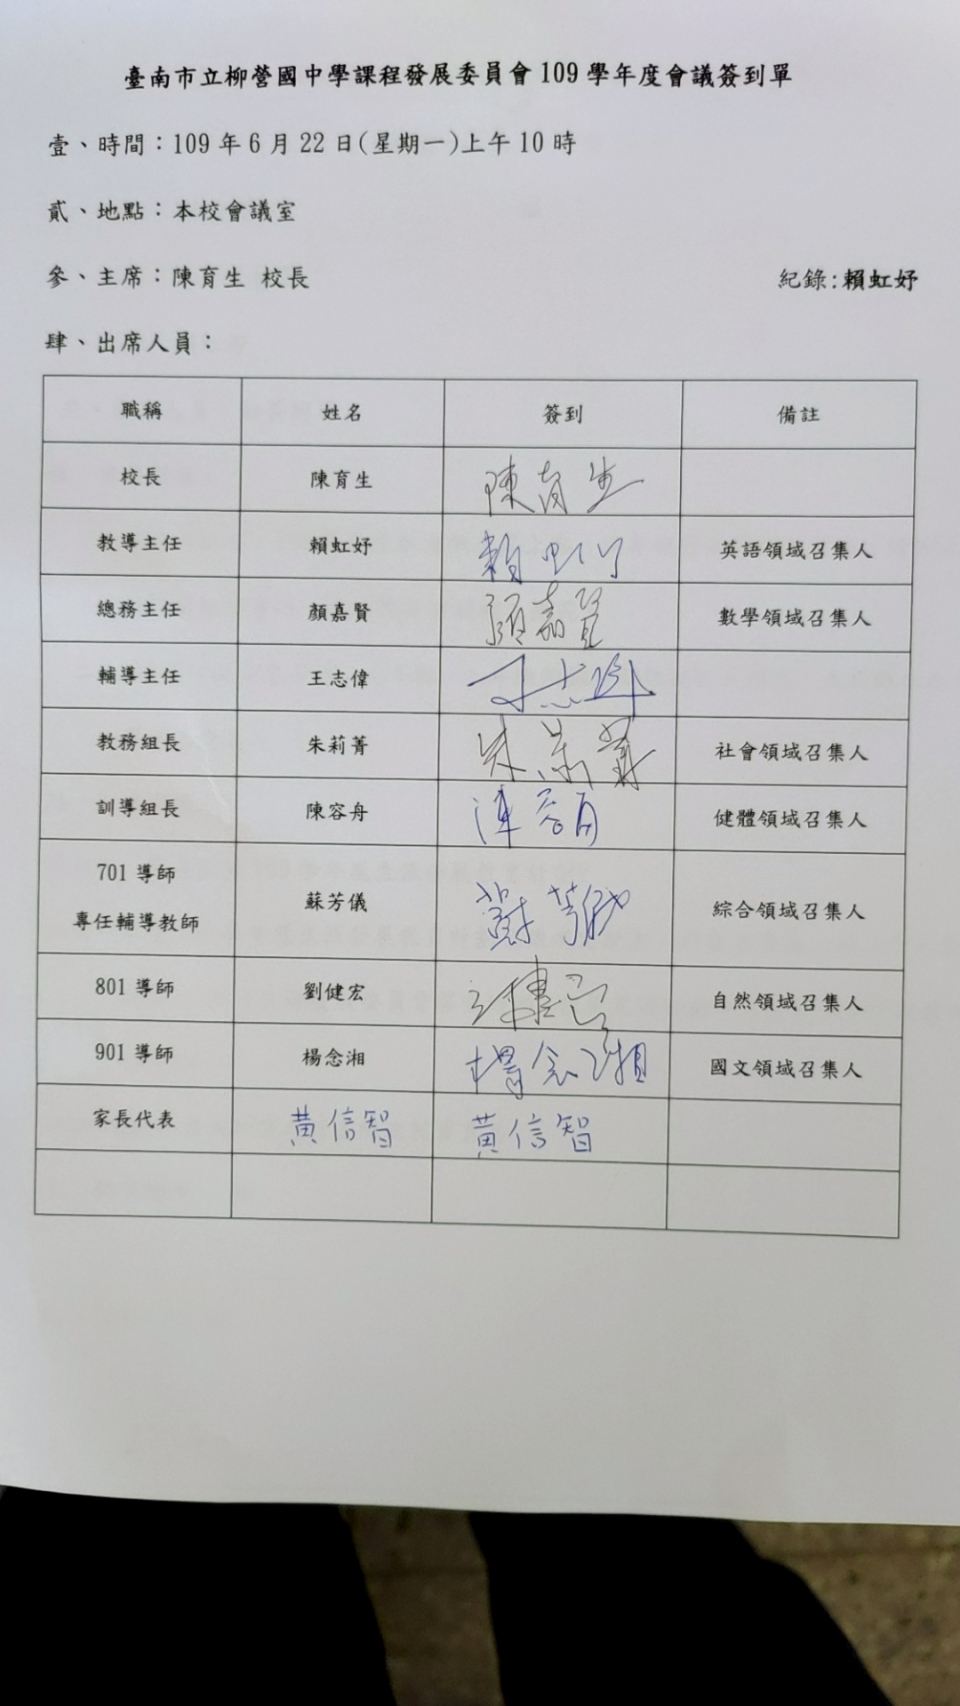 臺南市立柳營國中學課程發展委員會 109 學年度會議簽到單
壹、時間：109 年 6 月 22 日(星期一)上午 10 時
貳、地點：本校會議室
參、主席：陳育生 校長 紀錄:賴虹妤
肆、出席人員：
職稱 姓名 簽到 備註
校長 陳育生 陳育生
教導主任 賴虹妤 賴虹妤 英語領域召集人
總務主任 顏嘉賢 顏嘉賢 數學領域召集人
輔導主任 王志偉 王志偉
教務組長 朱莉菁 朱莉菁 社會領域召集人
訓導組長 陳容舟 陳容舟 健體領域召集人
701 導師
專任輔導教師 蘇芳儀 蘇芳儀 綜合領域召集人
801 導師 劉健宏 劉健宏 自然領域召集人
901 導師 楊念湘 楊念湘 國文領域召集人
家長代表 黃信智 黃信智